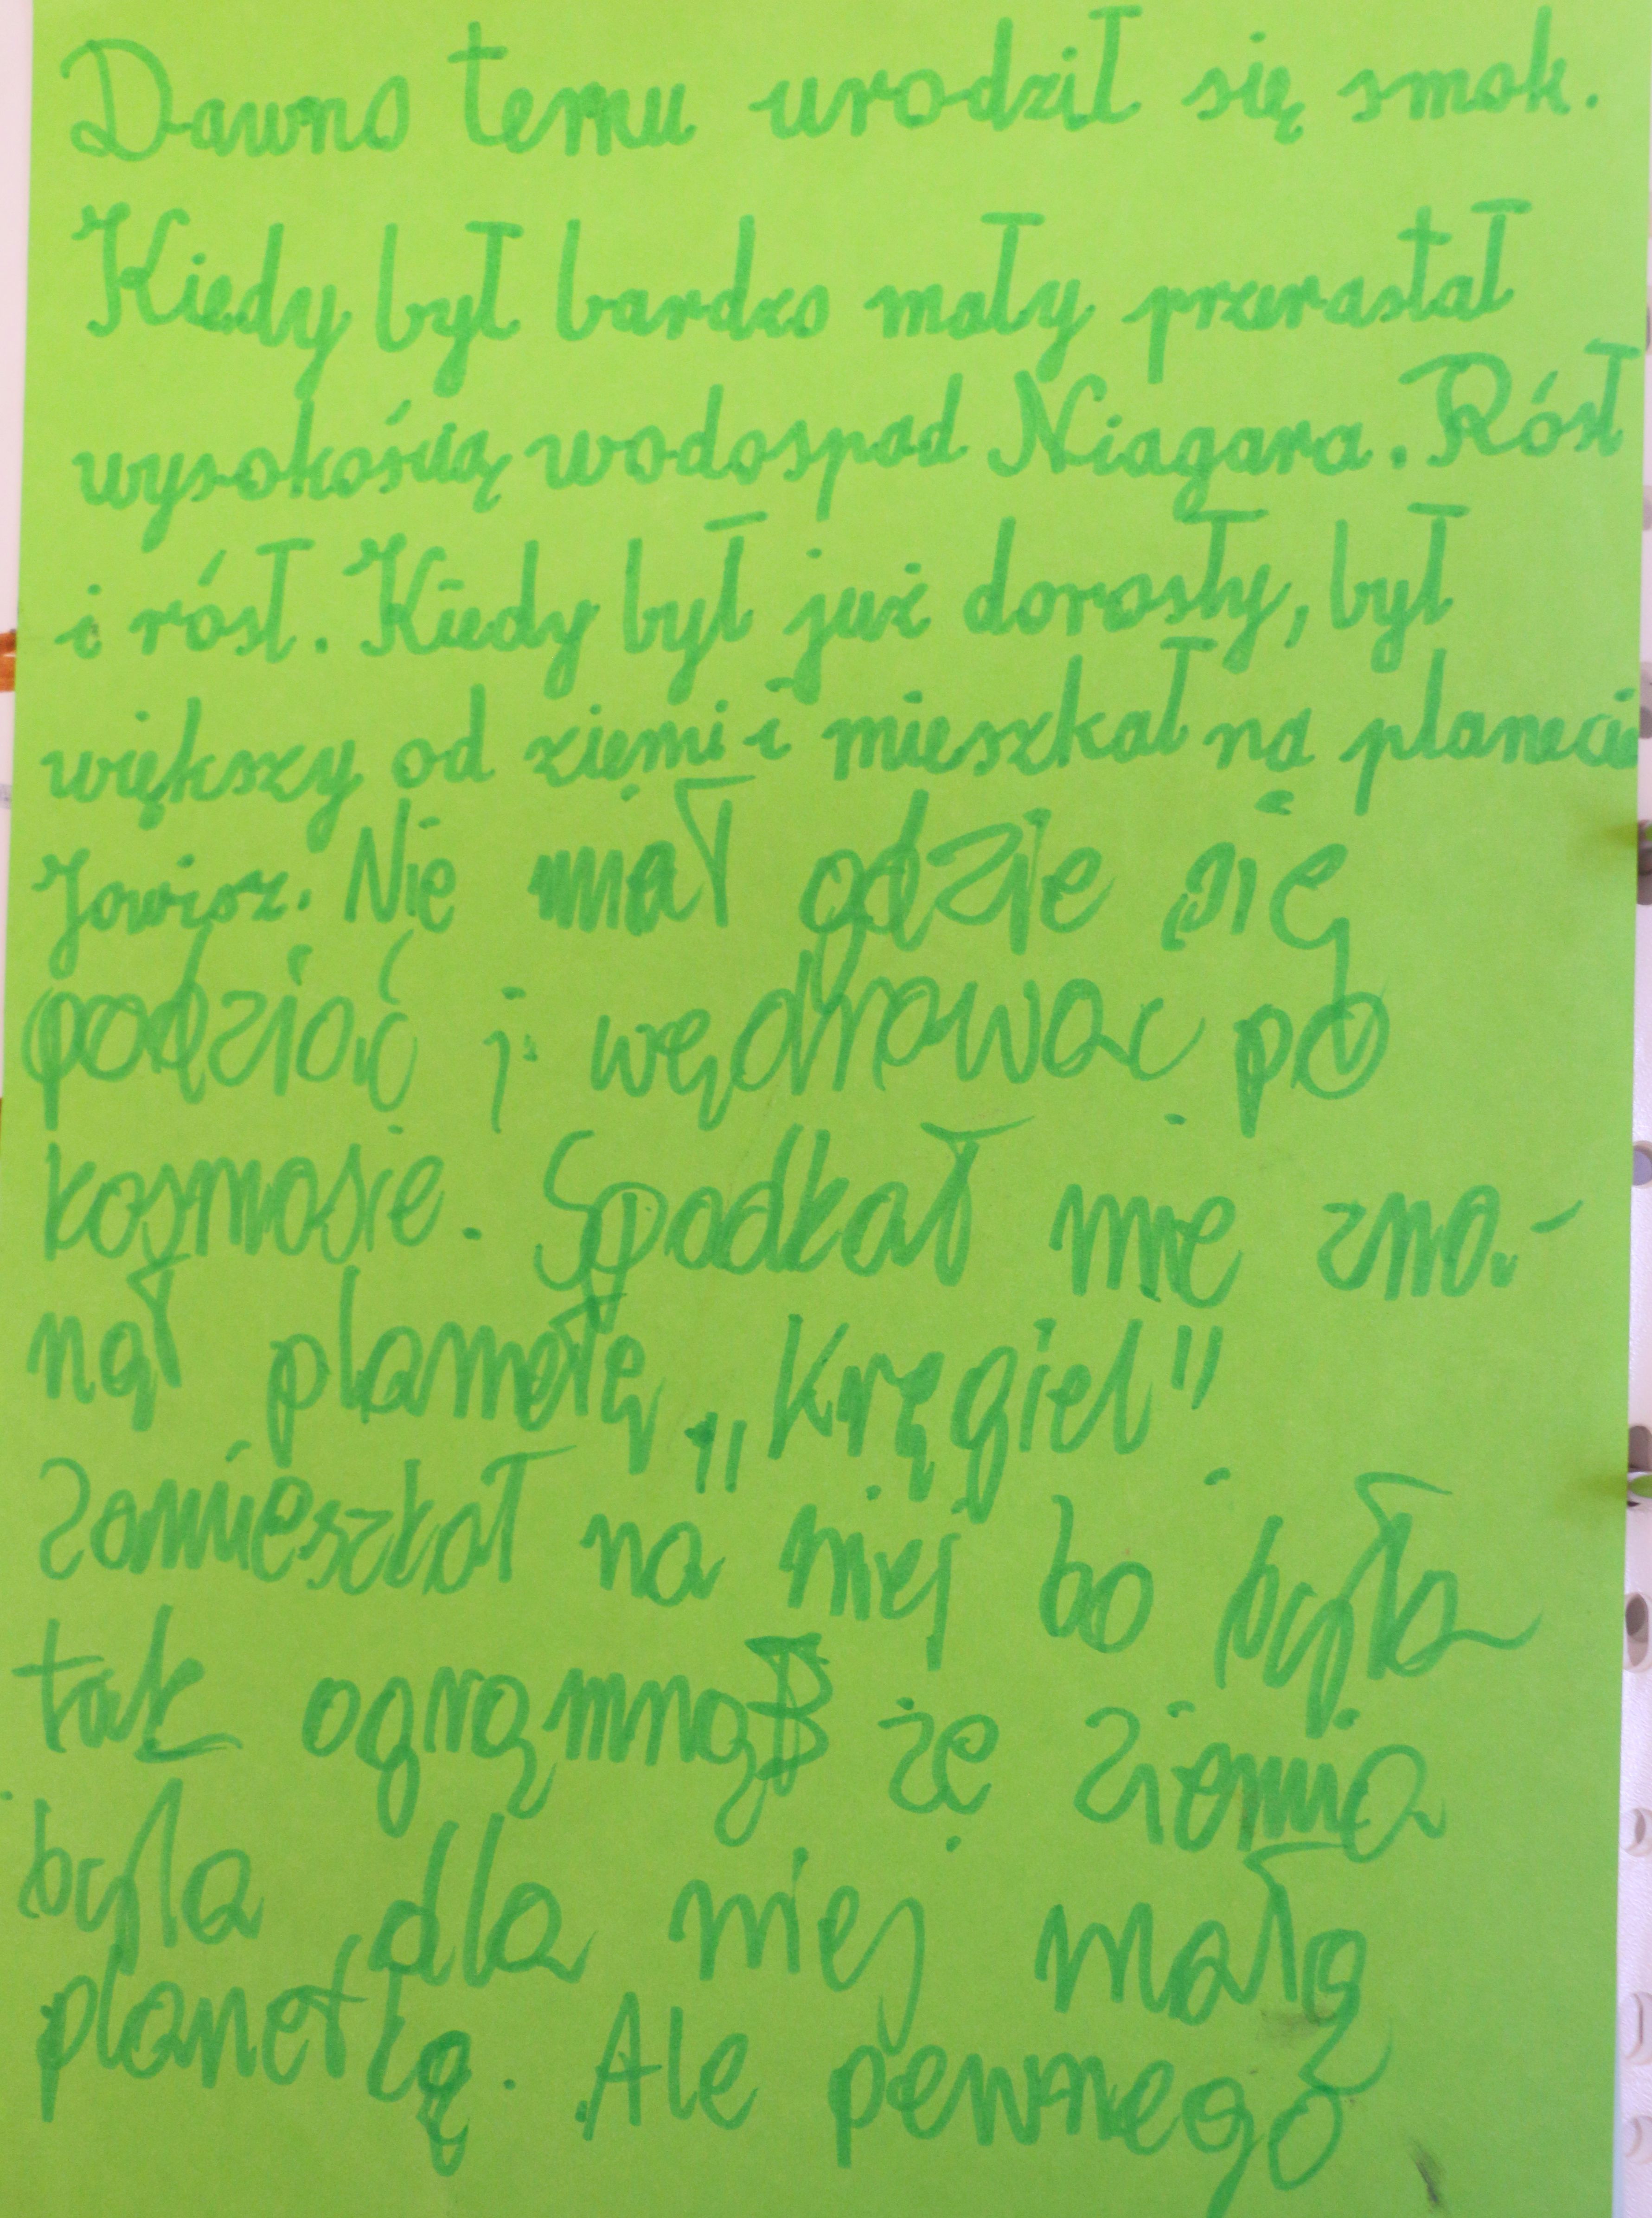 Dawno temu urodził się smok.
Kiedy był bardzo mały przerastał
wysokością wodospad Niagara. Rósł
i rósł. Kiedy był już dorosły, był
większy od ziemi i mieszkał na planecie
Jowisz. Nie miał gdzie się
podziać i wędrować po
kosmosie. Spodkał nie zna-
nął planetę „Kręgiel"
Zamieszkał na niej bo była
tak ogromną że Ziemia
była dla niej małą
planetką. Ale pewnego